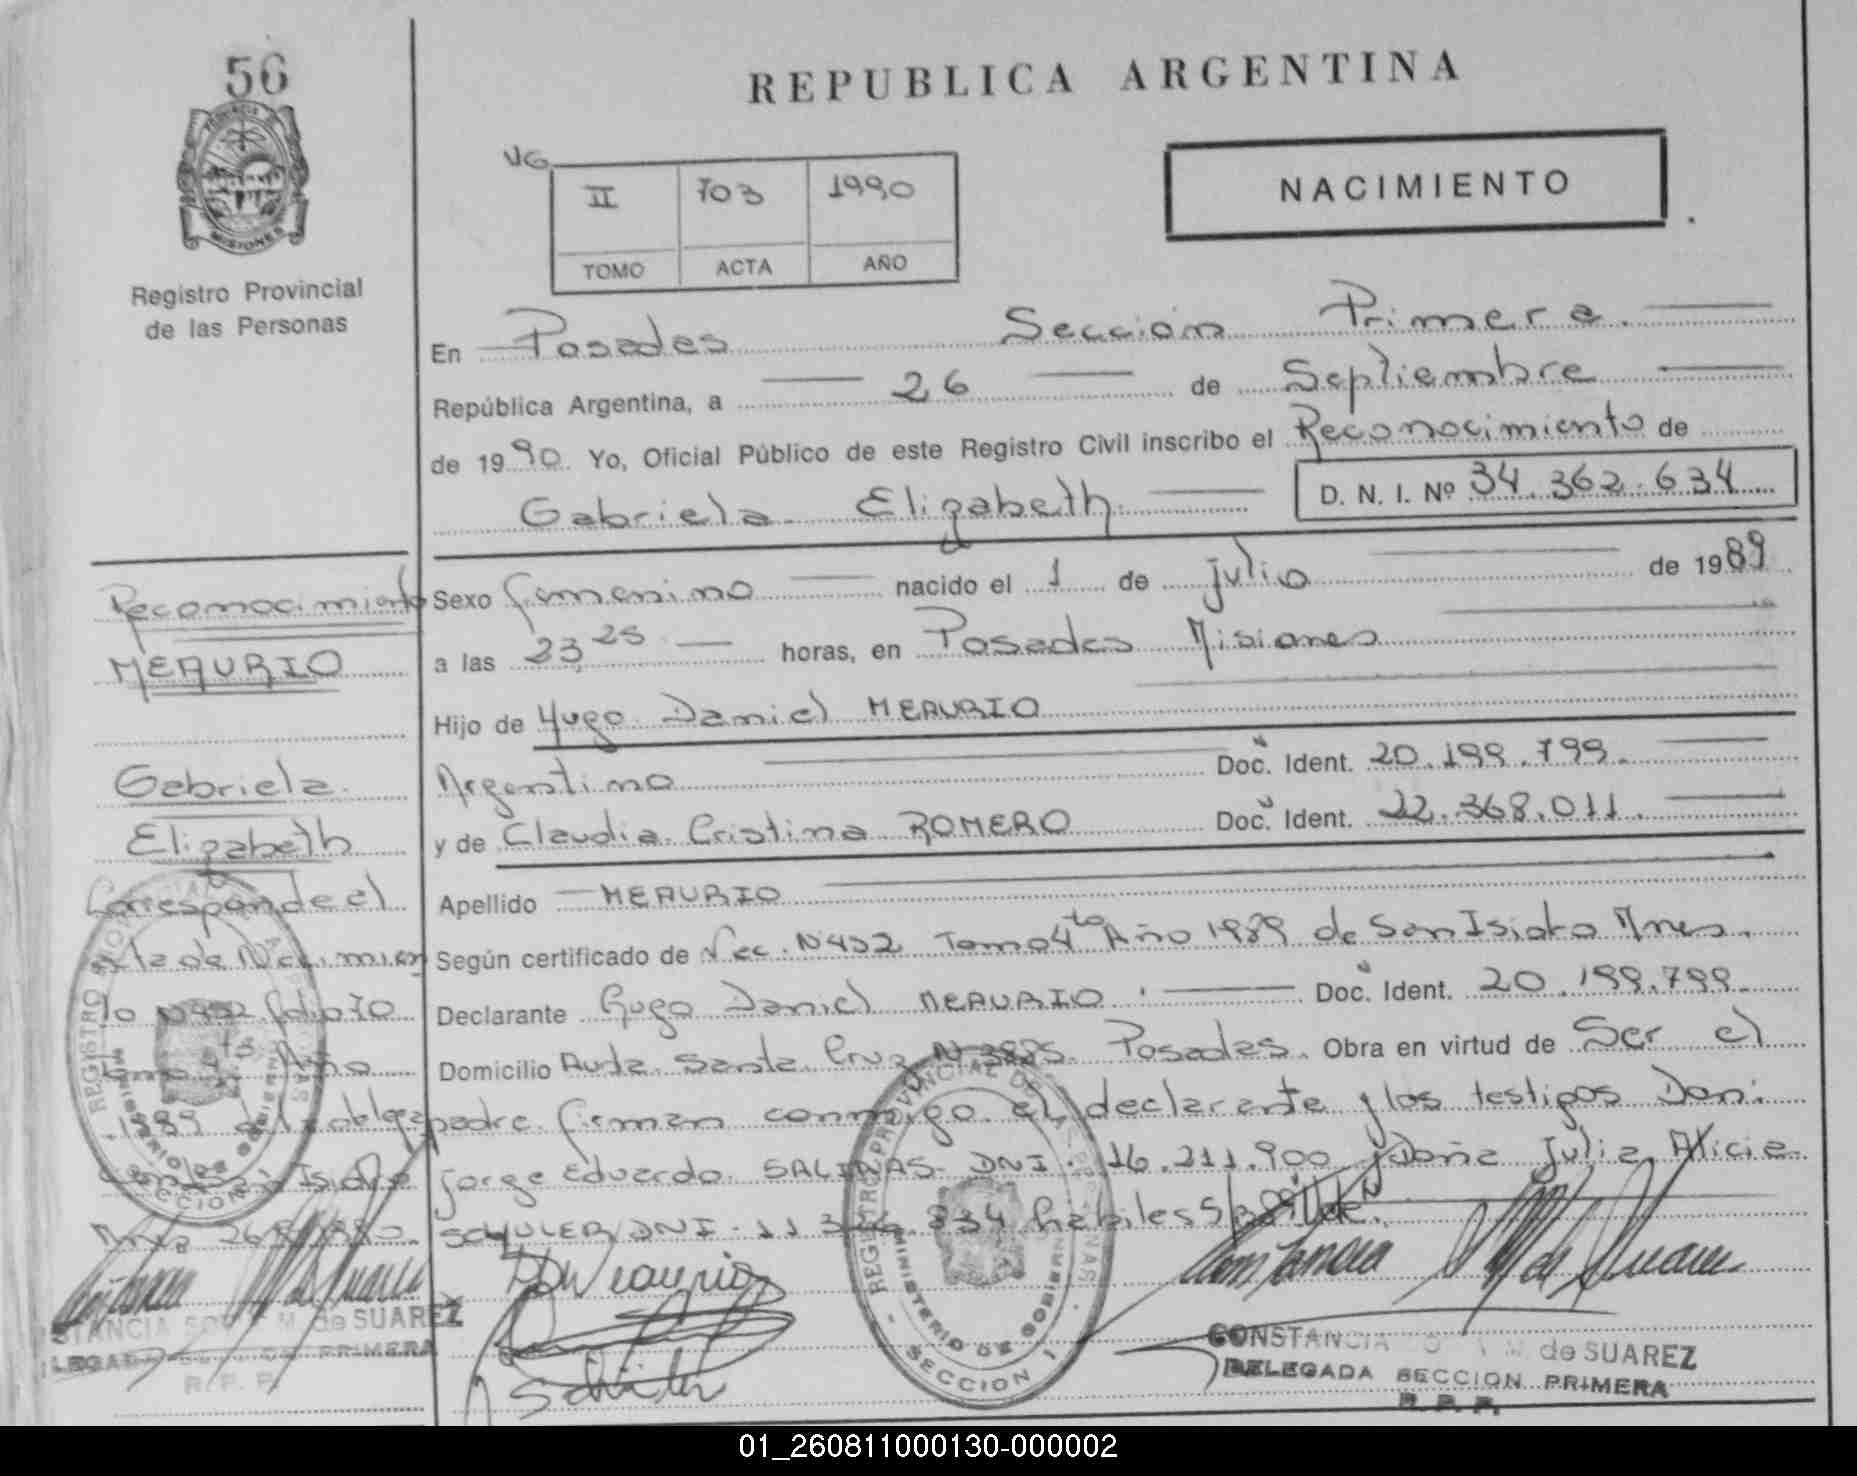 56
PROVINCIA DE
MISIONES
Registro Provincial
de las Personas
REPUBLICA ARGENTINA
VG
II 703 1990
TOMO ACTA AÑO
NACIMIENTO
En Posadas Sección Primera.
República Argentina, a 26 de Septiembre
de 1990. Yo, Oficial Público de este Registro Civil inscribo el Reconocimiento de
Gabriela Elizabeth
D. N. I. Nº 34.362.634
Sexo femenino nacido el 1 de julio de 1989
a las 23,25 horas, en Posadas Misiones
Hijo de Hugo Daniel MEAURIO
Argentino Doc. Ident. 20.199.799.
y de Claudia Cristina ROMERO Doc. Ident. 22.368.011.
Apellido MEAURIO
Según certificado de Nac. Nº452 Tomo 4to Año 1989 de San Isidro Mnes.
Declarante Hugo Daniel MEAURIO Doc. Ident. 20.199.799.
Domicilio Avda. Santa Cruz Nº 3885. Posadas. Obra en virtud de Ser el
padre firman conmigo el declarante y los testigos Don:
Jorge Eduardo SALINAS- DNI. 16.211.900 y Doña Julia Alicia
SCHULER DNI. 11 834 habiles
Reconocimiento
MEAURIO
Gabriela
Elizabeth
Corresponde el
Acta de Nacimien
to Nº452 folio 70
tomo 4to Año
1989 de la delega
San Isidro
REGISTRO PROVINCIAL DE LAS PERSONAS
MINISTERIO DE GOBIERNO
SECCION 1
CONSTANCIA M. de SUAREZ
DELEGADA SECCION PRIMERA
R. P. P.
M. de SUAREZ
PRIMERA
R. P. P.
01_260811000130-000002